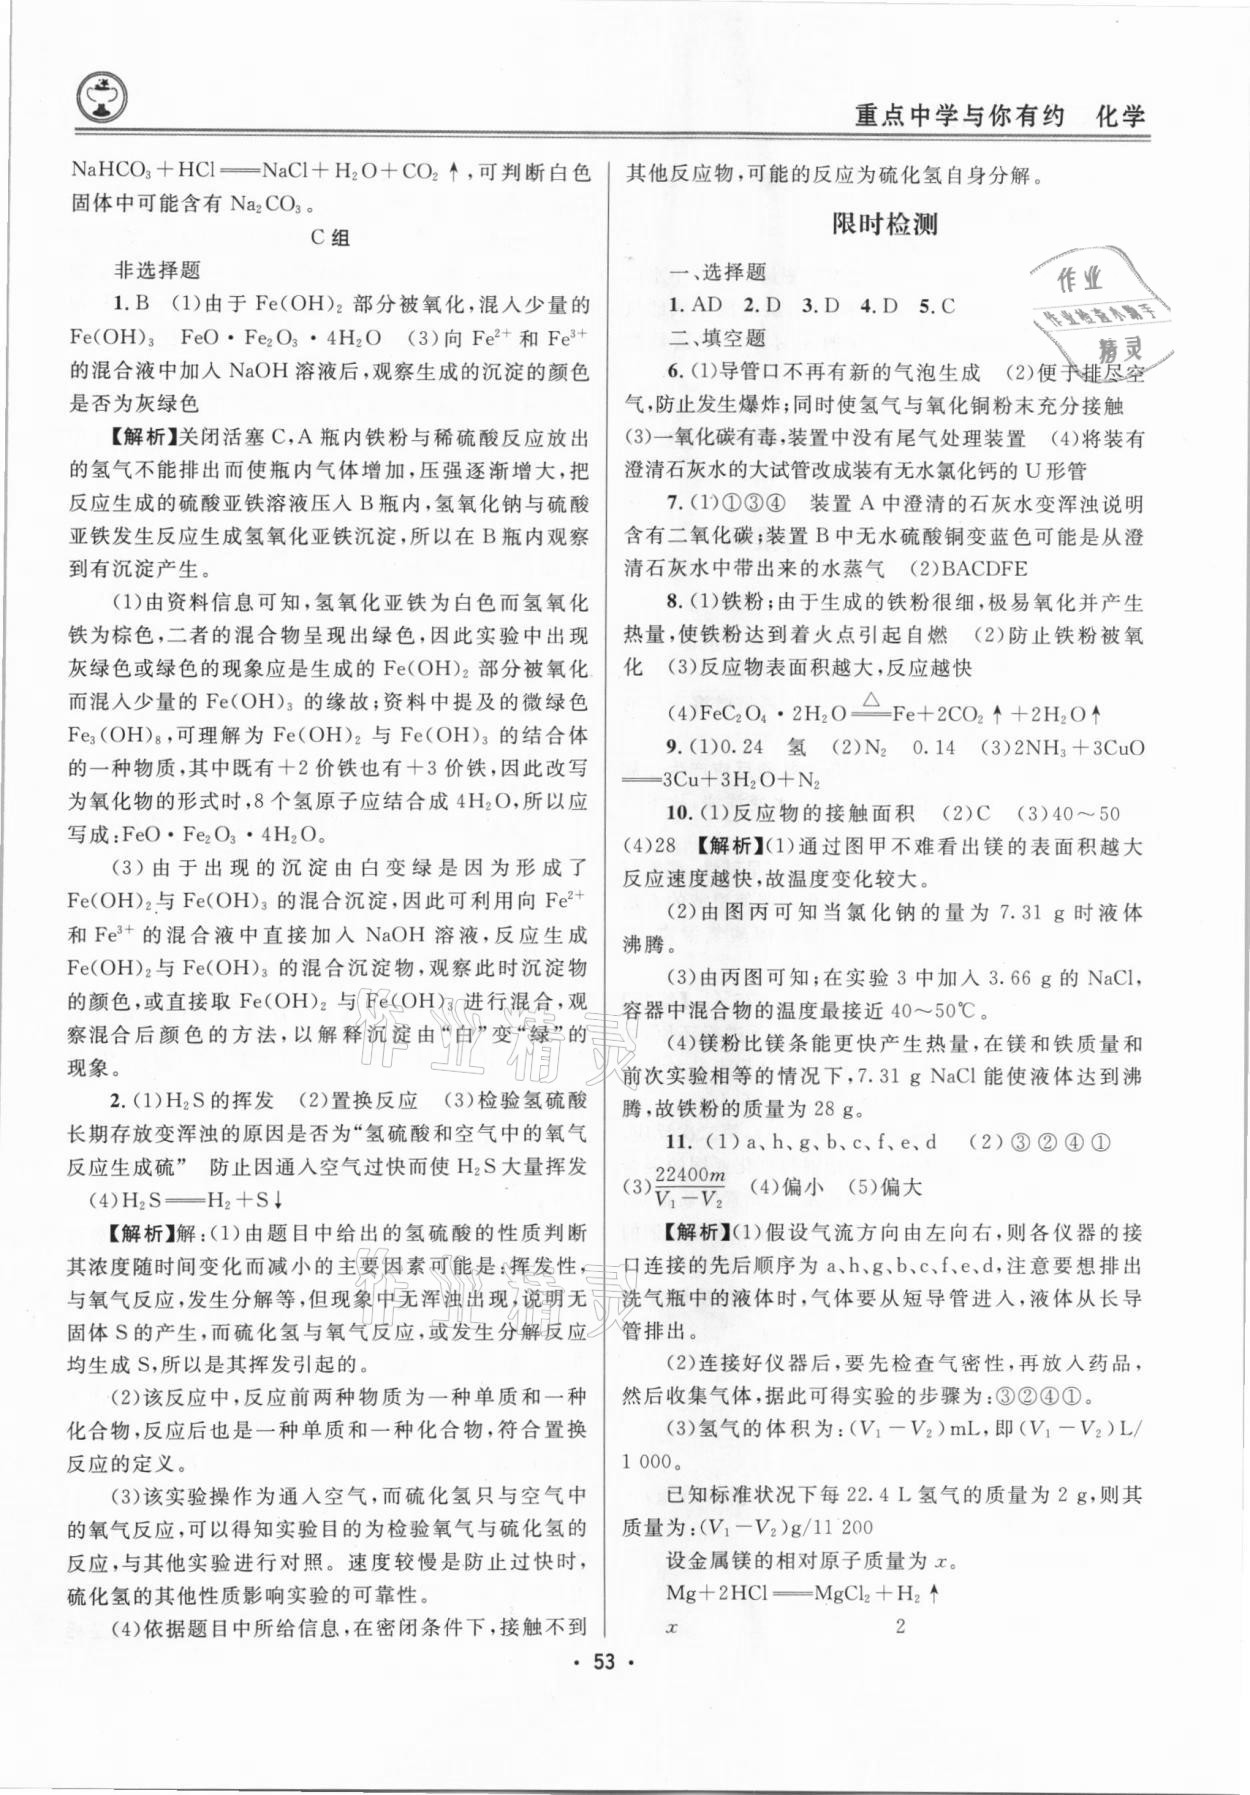 重点中学与你有约　化学
NaHCO₃+HCl══NaCl+H₂O+CO₂↑,可判断白色
固体中可能含有 Na₂CO₃。
C 组
非选择题
1. B　(1)由于 Fe(OH)₂ 部分被氧化,混入少量的
Fe(OH)₃　FeO·Fe₂O₃·4H₂O　(3)向 Fe²⁺ 和 Fe³⁺
的混合液中加入 NaOH 溶液后,观察生成的沉淀的颜色
是否为灰绿色
【解析】关闭活塞 C,A 瓶内铁粉与稀硫酸反应放出
的氢气不能排出而使瓶内气体增加,压强逐渐增大,把
反应生成的硫酸亚铁溶液压入 B 瓶内,氢氧化钠与硫酸
亚铁发生反应生成氢氧化亚铁沉淀,所以在 B 瓶内观察
到有沉淀产生。
(1)由资料信息可知,氢氧化亚铁为白色而氢氧化
铁为棕色,二者的混合物呈现出绿色,因此实验中出现
灰绿色或绿色的现象应是生成的 Fe(OH)₂ 部分被氧化
而混入少量的 Fe(OH)₃ 的缘故;资料中提及的微绿色
Fe₃(OH)₈,可理解为 Fe(OH)₂ 与 Fe(OH)₃ 的结合体
的一种物质,其中既有+2 价铁也有+3 价铁,因此改写
为氧化物的形式时,8 个氢原子应结合成 4H₂O,所以应
写成:FeO·Fe₂O₃·4H₂O。
(3)由于出现的沉淀由白变绿是因为形成了
Fe(OH)₂与 Fe(OH)₃ 的混合沉淀,因此可利用向 Fe²⁺
和 Fe³⁺ 的混合液中直接加入 NaOH 溶液,反应生成
Fe(OH)₂与 Fe(OH)₃ 的混合沉淀物,观察此时沉淀物
的颜色,或直接取 Fe(OH)₂ 与 Fe(OH)₃ 进行混合,观
察混合后颜色的方法,以解释沉淀由“白”变“绿”的
现象。
2. (1)H₂S的挥发　(2)置换反应　(3)检验氢硫酸
长期存放变浑浊的原因是否为“氢硫酸和空气中的氧气
反应生成硫”　防止因通入空气过快而使 H₂S大量挥发
(4)H₂S══H₂+S↓
【解析】解:(1)由题目中给出的氢硫酸的性质判断
其浓度随时间变化而减小的主要因素可能是:挥发性,
与氧气反应,发生分解等,但现象中无浑浊出现,说明无
固体 S的产生,而硫化氢与氧气反应,或发生分解反应
均生成 S,所以是其挥发引起的。
(2)该反应中,反应前两种物质为一种单质和一种
化合物,反应后也是一种单质和一种化合物,符合置换
反应的定义。
(3)该实验操作为通入空气,而硫化氢只与空气中
的氧气反应,可以得知实验目的为检验氧气与硫化氢的
反应,与其他实验进行对照。速度较慢是防止过快时,
硫化氢的其他性质影响实验的可靠性。
(4)依据题目中所给信息,在密闭条件下,接触不到
其他反应物,可能的反应为硫化氢自身分解。
限时检测
一、选择题
1. AD　2. D　3. D　4. D　5. C
二、填空题
6. (1)导管口不再有新的气泡生成　(2)便于排尽空
气,防止发生爆炸;同时使氢气与氧化铜粉末充分接触
(3)一氧化碳有毒,装置中没有尾气处理装置　(4)将装有
澄清石灰水的大试管改成装有无水氯化钙的 U 形管
7. (1)①③④　装置 A 中澄清的石灰水变浑浊说明
含有二氧化碳;装置 B中无水硫酸铜变蓝色可能是从澄
清石灰水中带出来的水蒸气　(2)BACDFE
8. (1)铁粉;由于生成的铁粉很细,极易氧化并产生
热量,使铁粉达到着火点引起自燃　(2)防止铁粉被氧
化　(3)反应物表面积越大,反应越快
(4)FeC₂O₄·2H₂O══(△)Fe+2CO₂↑+2H₂O↑
9. (1)0.24　氢　(2)N₂　0.14　(3)2NH₃+3CuO
══3Cu+3H₂O+N₂
10. (1)反应物的接触面积　(2)C　(3)40～50
(4)28　【解析】(1)通过图甲不难看出镁的表面积越大
反应速度越快,故温度变化较大。
(2)由图丙可知当氯化钠的量为 7.31 g时液体
沸腾。
(3)由丙图可知;在实验 3 中加入 3.66 g 的 NaCl,
容器中混合物的温度最接近 40～50℃。
(4)镁粉比镁条能更快产生热量,在镁和铁质量和
前次实验相等的情况下,7.31 g NaCl 能使液体达到沸
腾,故铁粉的质量为 28 g。
11. (1)a、h、g、b、c、f、e、d　(2)③②④①
(3)22400m/(V₁-V₂)　(4)偏小　(5)偏大
【解析】(1)假设气流方向由左向右,则各仪器的接
口连接的先后顺序为 a、h、g、b、c、f、e、d,注意要想排出
洗气瓶中的液体时,气体要从短导管进入,液体从长导
管排出。
(2)连接好仪器后,要先检查气密性,再放入药品,
然后收集气体,据此可得实验的步骤为:③②④①。
(3)氢气的体积为:(V₁-V₂)mL,即(V₁-V₂)L/
1 000。
已知标准状况下每 22.4 L 氢气的质量为 2 g,则其
质量为:(V₁-V₂)g/11 200
设金属镁的相对原子质量为 x。
Mg+2HCl══MgCl₂+H₂↑
x　　　　2
·53·
作业
作业检查小助手
精灵
作业精灵
作业精灵